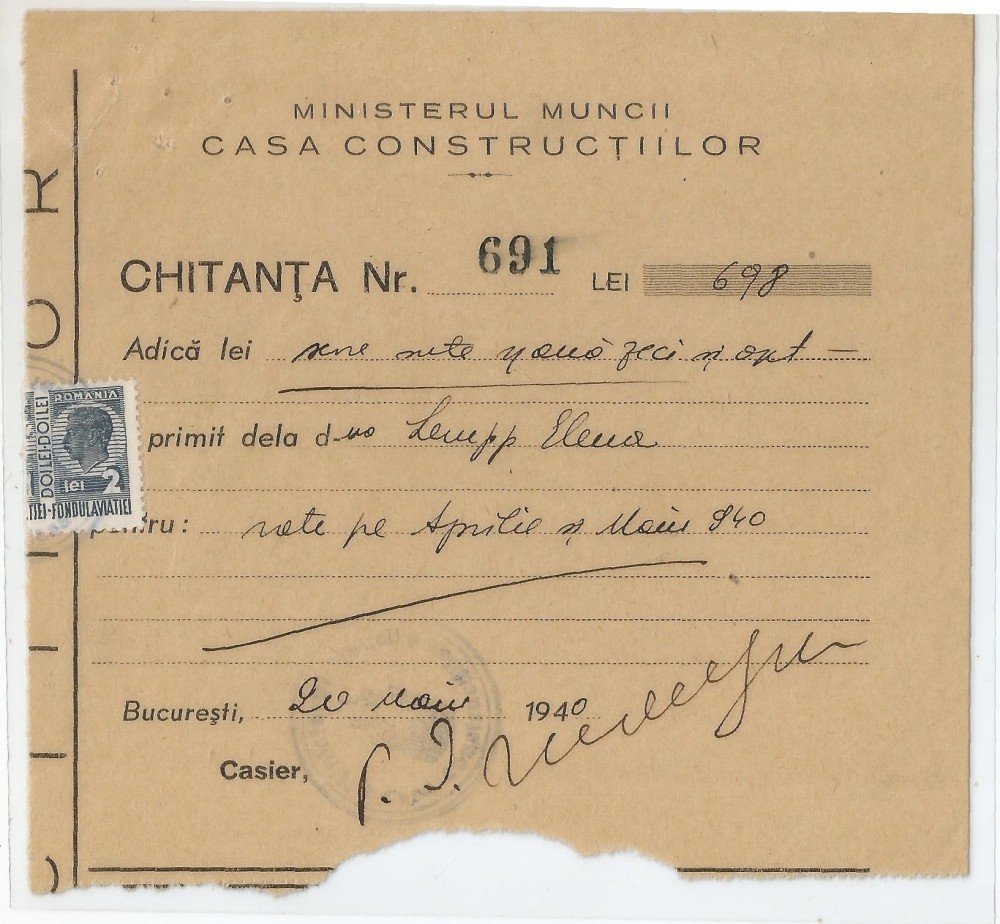 MINISTERUL MUNCII
CASA CONSTRUCȚIILOR
CHITANȚA Nr. 691 LEI 698
Adică lei șase sute nouă zeci și opt —
primit dela d-na Lempp Elena
pentru: rate pe Aprilie și Maiu 940
București, 20 Maiu 1940
Casier,
P. I.
R
O
ROMANIA
DOILEI-DOILEI
lei 2
ȚIEI-FONDULAVIAȚIEI